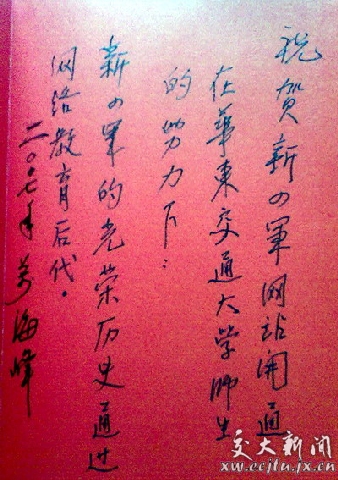 祝贺新四军网站开通
在华东交通大学师生
的努力下：
新四军的光荣历史通过
网络教育后代。
二〇〇七年 万海峰
交大新闻
xw.ecjtu.jx.cn